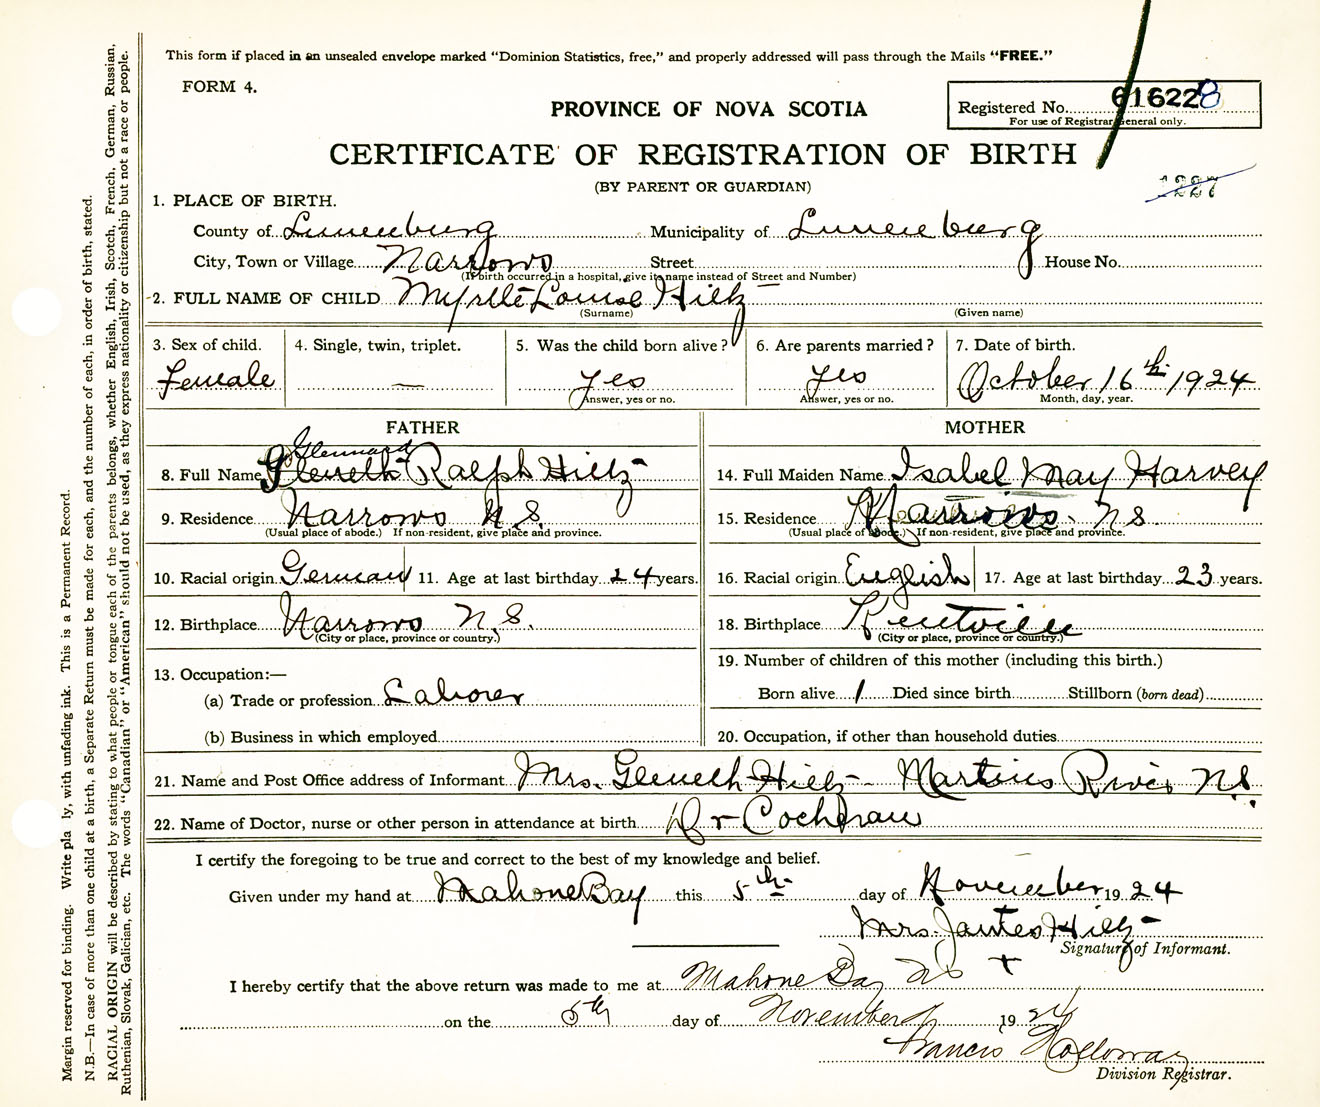 This form if placed in an unsealed envelope marked "Dominion Statistics, free," and properly addressed will pass through the Mails "FREE."
FORM 4.
PROVINCE OF NOVA SCOTIA
Registered No. 616228
For use of Registrar General only.
CERTIFICATE OF REGISTRATION OF BIRTH
(BY PARENT OR GUARDIAN)
1227
1. PLACE OF BIRTH.
County of Lunenburg Municipality of Lunenburg
City, Town or Village Narrows Street House No.
(If birth occurred in a hospital, give its name instead of Street and Number)
2. FULL NAME OF CHILD Myrtle Louise Hiltz
(Surname) (Given name)
3. Sex of child. 4. Single, twin, triplet. 5. Was the child born alive? 6. Are parents married? 7. Date of birth.
Female — yes yes October 16th 1924
Answer, yes or no. Answer, yes or no. Month, day, year.
FATHER MOTHER
Glennard
8. Full Name Gleneth Ralph Hiltz 14. Full Maiden Name Isabel May Harvey
9. Residence Narrows N.S. 15. Residence Narrows N.S.
(Usual place of abode.) If non-resident, give place and province. (Usual place of abode.) If non-resident, give place and province.
10. Racial origin German 11. Age at last birthday 24 years. 16. Racial origin English 17. Age at last birthday 23 years.
12. Birthplace Narrows N.S. 18. Birthplace Kentville
(City or place, province or country.) (City or place, province or country.)
13. Occupation:— 19. Number of children of this mother (including this birth.)
(a) Trade or profession Laborer Born alive 1 Died since birth Stillborn (born dead)
(b) Business in which employed 20. Occupation, if other than household duties
21. Name and Post Office address of Informant Mrs. Gleneth Hiltz - Martins River N.S.
22. Name of Doctor, nurse or other person in attendance at birth Dr Cochran
I certify the foregoing to be true and correct to the best of my knowledge and belief.
Given under my hand at Mahone Bay this 5th day of November 1924
Mrs. Hiltz
Signature of Informant.
I hereby certify that the above return was made to me at Mahone Bay NS
on the 5th day of November 1924
Francis Holloway
Division Registrar.
Margin reserved for binding. Write pla ly, with unfading ink. This is a Permanent Record.
N.B.—In case of more than one child at a birth, a Separate Return must be made for each, and the number of each, in order of birth, stated.
RACIAL ORIGIN will be described by stating to what people or tongue each of the parents belongs, whether English, Irish, Scotch, French, German, Russian,
Ruthenian, Slovek, Galician, etc. The words "Canadian" or "American" should not be used, as they express nationality or citizenship but not a race or people.